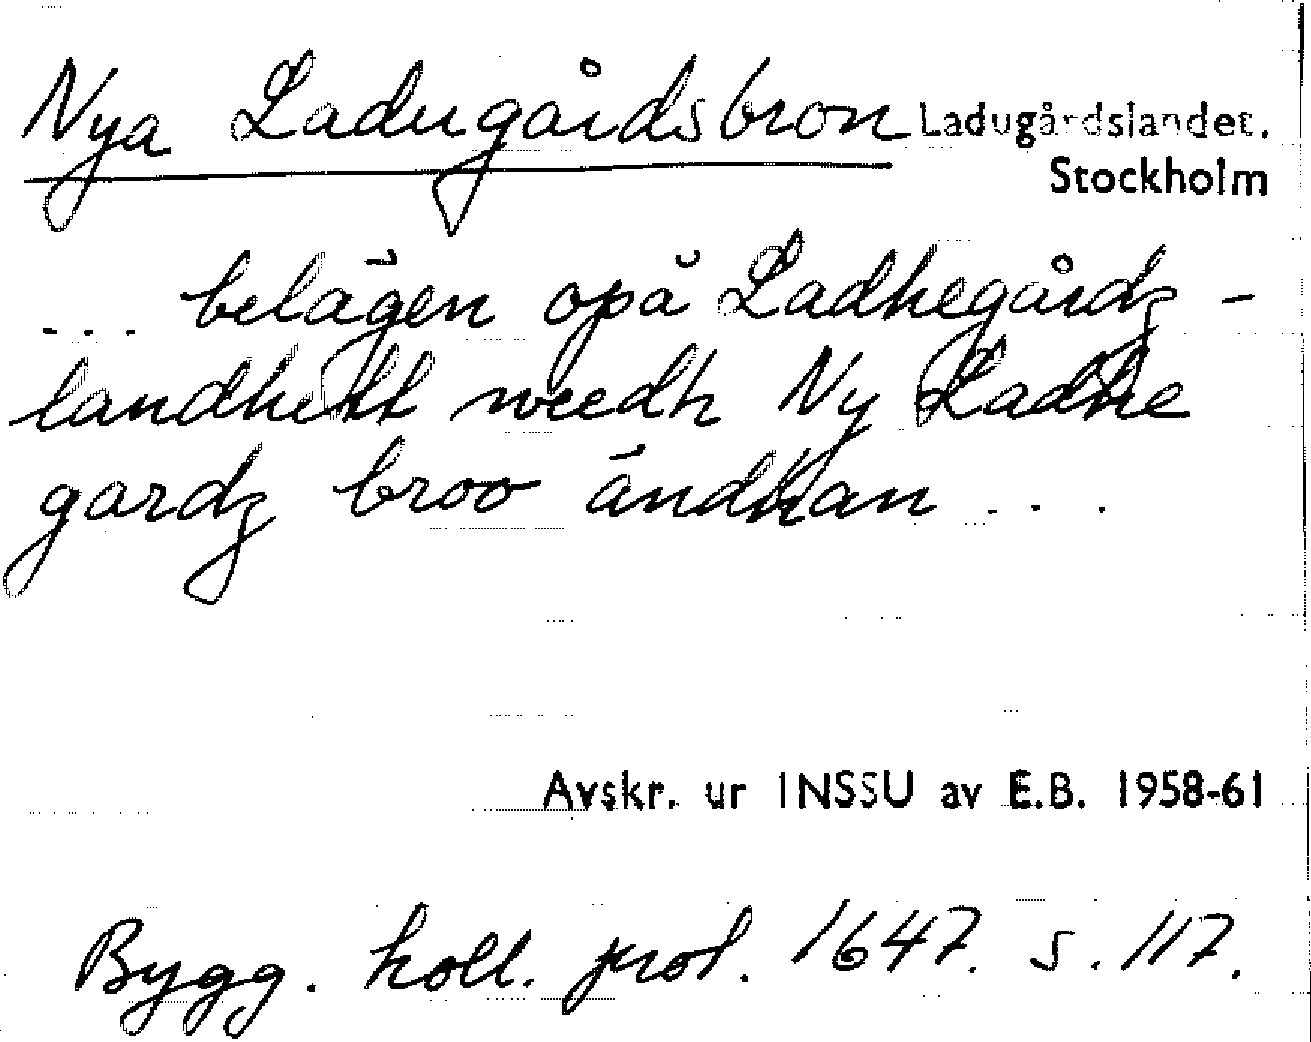 Nya Ladugårdsbron Ladugårdslandet.
Stockholm
... belägen opå Ladhegårdz-
landhett weedh Ny Ladhe
gardz broo ändhan ...
Avskr. ur INSSU av E.B. 1958-61
Bygg. koll. prot. 1647. s. 117.